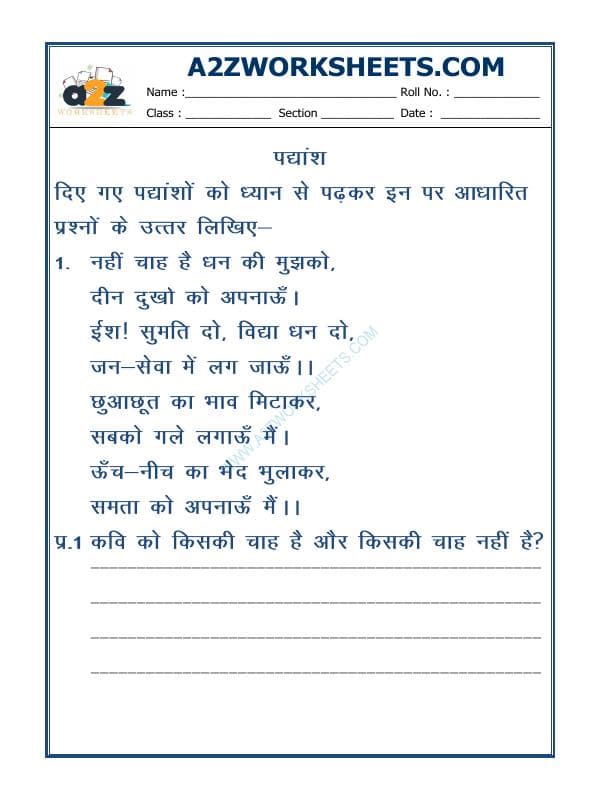 A2ZWORKSHEETS.COM
a2z
WORKSHEETS
Name :______________________ Roll No. : __________
Class : __________ Section _________ Date : ___________
पद्यांश
दिए गए पद्यांशों को ध्यान से पढ़कर इन पर आधारित
प्रश्नों के उत्तर लिखिए–
1. नहीं चाह है धन की मुझको,
दीन दुखो को अपनाऊँ।
ईश! सुमति दो, विद्या धन दो,
जन–सेवा में लग जाऊँ।।
छुआछूत का भाव मिटाकर,
सबको गले लगाऊँ मैं।
ऊँच–नीच का भेद भुलाकर,
समता को अपनाऊँ मैं।।
प्र.1 कवि को किसकी चाह है और किसकी चाह नहीं है?
WWW.A2ZWORKSHEETS.COM